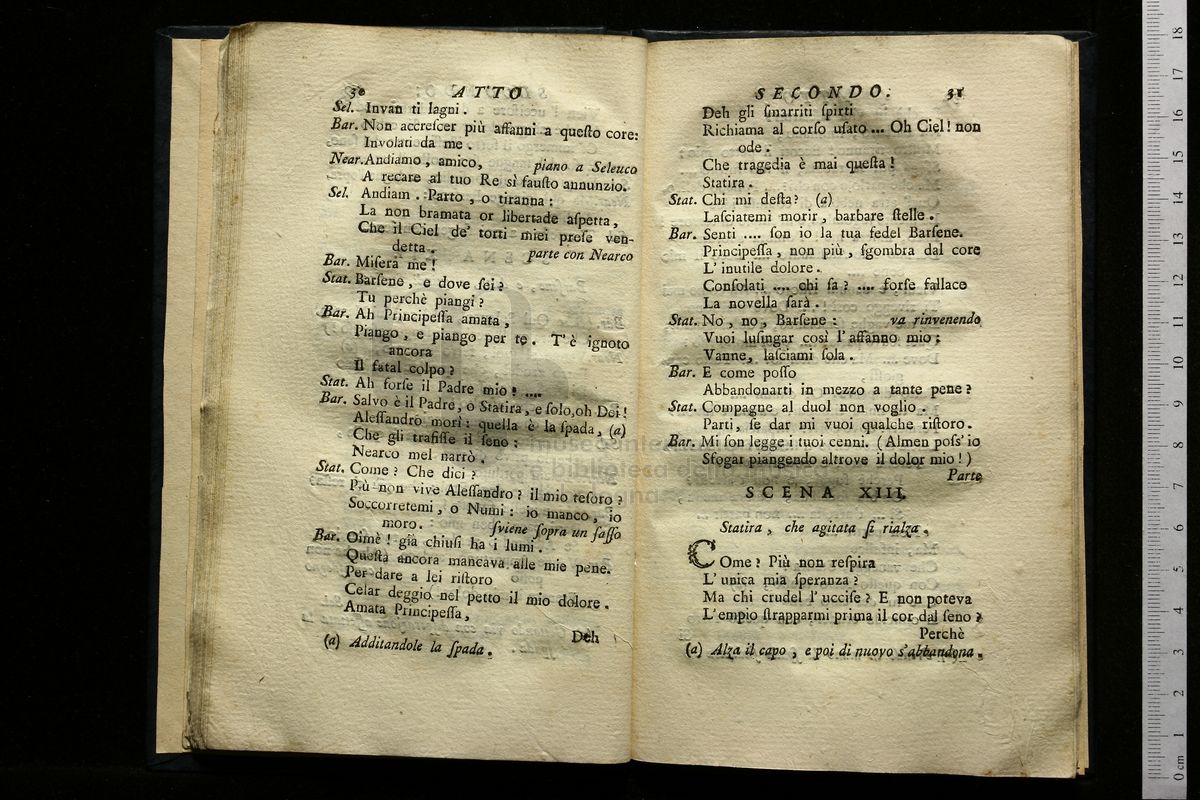 30 ATTO
Sel. Invan ti lagni.
Bar. Non accreſcer più affanni a queſto core:
Involati da me.
Near. Andiamo, amico, piano a Seleuco
A recare al tuo Re sì fauſto annunzio.
Sel. Andiam. Parto, o tiranna:
La non bramata or libertade aſpetta,
Che il Ciel de' torti miei preſe ven-
detta. parte con Nearco
Bar. Miſera me!
Stat. Barſene, e dove ſei?
Tu perchè piangi?
Bar. Ah Principeſſa amata,
Piango, e piango per te. T'è ignoto
ancora
Il fatal colpo?
Stat. Ah forſe il Padre mio! ....
Bar. Salvo è il Padre, o Statira, e ſolo, oh Dei!
Aleſſandro morì: quella è la ſpada, (a)
Che gli trafiſſe il ſeno:
Nearco mel narrò.
Stat. Come? Che dici?
Più non vive Aleſſandro? il mio teſoro?
Soccorretemi, o Numi: io manco, io
moro. ſviene ſopra un ſaſſo
Bar. Oimè! già chiuſi ha i lumi.
Queſta ancora mancava alle mie pene.
Per dare a lei riſtoro
Celar deggio nel petto il mio dolore.
Amata Principeſſa,
Deh
(a) Additandole la ſpada.
SECONDO. 31
Deh gli ſmarriti ſpirti
Richiama al corſo uſato ... Oh Ciel! non
ode.
Che tragedia è mai queſta!
Statira.
Stat. Chi mi deſta? (a)
Laſciatemi morir, barbare ſtelle.
Bar. Senti .... ſon io la tua fedel Barſene.
Principeſſa, non più, ſgombra dal core
L' inutile dolore.
Conſolati .... chi ſa? .... forſe fallace
La novella ſarà.
Stat. No, no, Barſene: va rinvenendo
Vuoi luſingar così l' affanno mio;
Vanne, laſciami ſola.
Bar. E come poſſo
Abbandonarti in mezzo a tante pene?
Stat. Compagne al duol non voglio.
Parti, ſe dar mi vuoi qualche riſtoro.
Bar. Mi ſon legge i tuoi cenni. (Almen poſs' io
Sfogar piangendo altrove il dolor mio!)
Parte
SCENA XIII.
Statira, che agitata ſi rialza.
COme? Più non reſpira
L' unica mia ſperanza?
Ma chi crudel l' ucciſe? E non poteva
L' empio ſtrapparmi prima il cor dal ſeno?
Perchè
(a) Alza il capo, e poi di nuovo s'abbandona.
0 cm 1 2 3 4 5 6 7 8 9 10 11 12 13 14 15 16 17 18